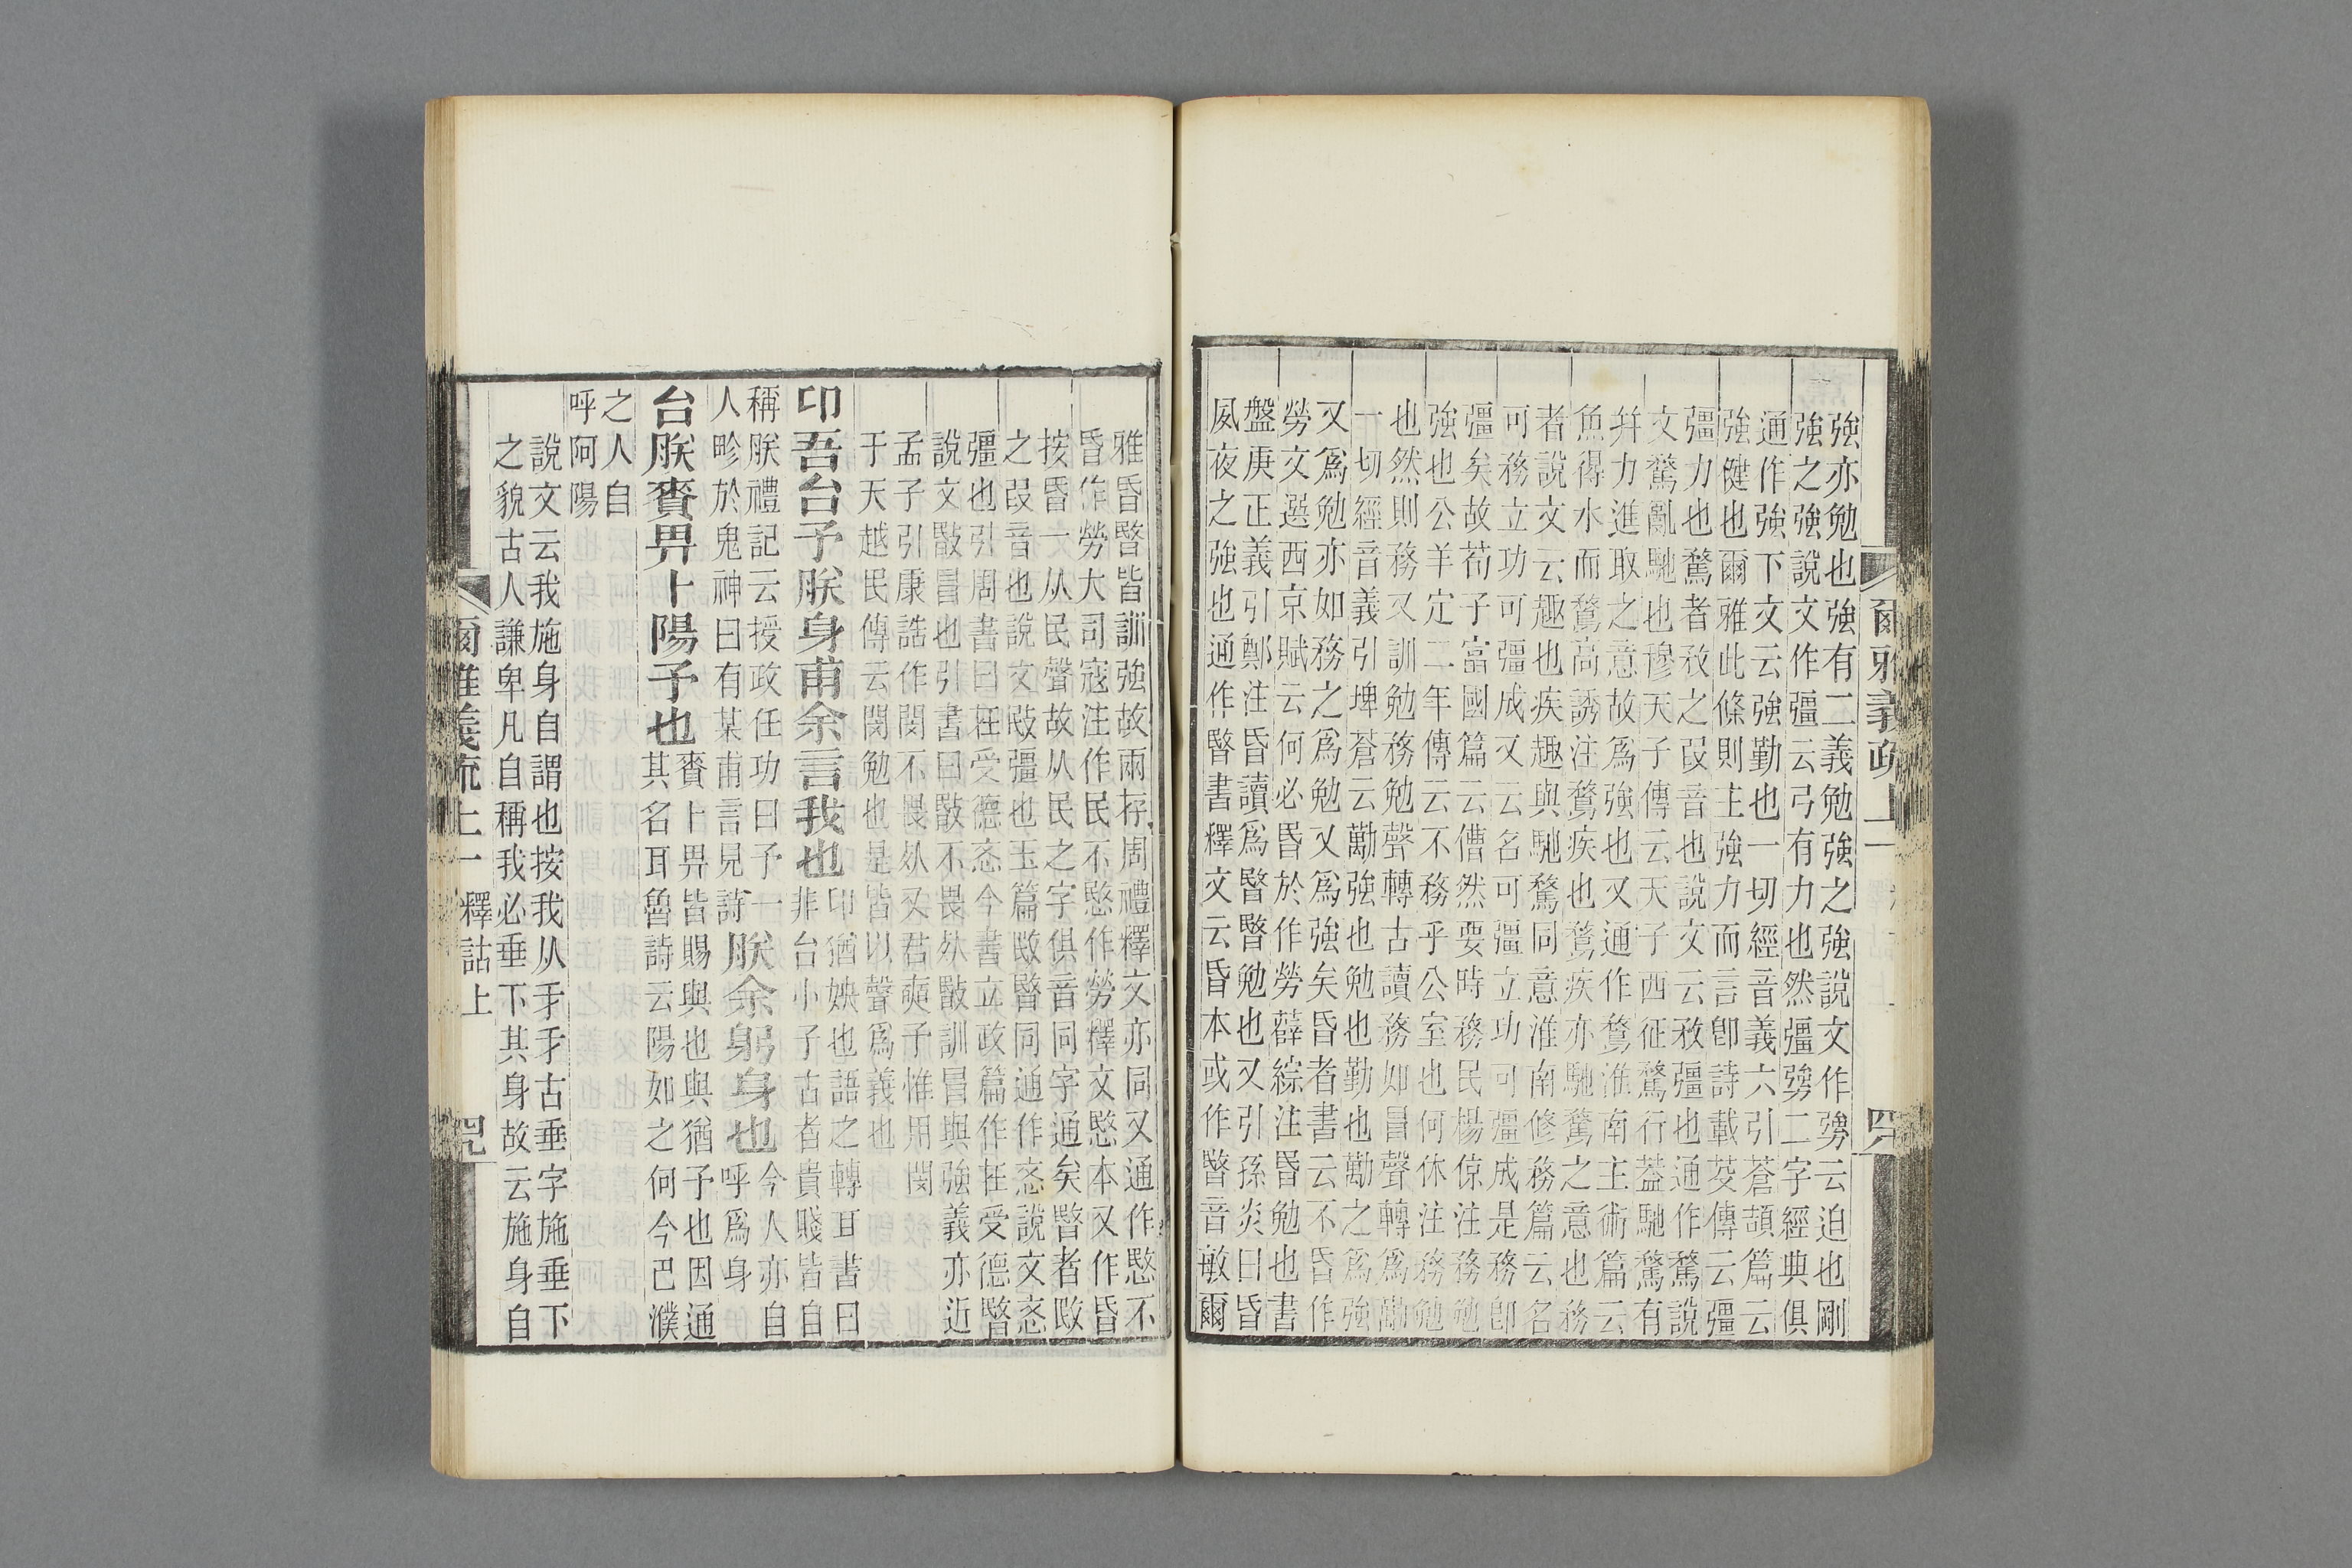 爾雅義疏 上一 四
強亦勉也強有二義勉強之強說文作勥云迫也剛
強之強說文作彊云弓有力也然彊勥二字經典俱
通作強下文云強勤也一切經音義六引蒼頡篇云
強健也爾雅此條則主強力而言卽詩載芟傳云彊
彊力也騖者敄之叚音也說文云敄彊也通作騖說
文騖亂馳也穆天子傳云天子西征騖行葢馳騖有
幷力進取之意故爲強也又通作鶩淮南主術篇云
魚得水而鶩高誘注鶩疾也鶩疾亦馳騖之意也務
者說文云趣也疾趣與馳騖同意淮南修務篇云名
可務立功可彊成又云名可彊立功可彊成是務卽
彊矣故荀子富國篇云僡然要時務民楊倞注務勉
強也公羊定二年傳云不務乎公室也何休注務勉
也然則務又訓勉務勉聲轉古讀務如冒聲轉爲勱
一切經音義引埤蒼云勱強也勉也勤也勱之爲強
又爲勉亦如務之爲勉又爲強矣昏者書云不昏作
勞文選西京賦云何必昏於作勞薛綜注昏勉也書
盤庚正義引鄭注昏讀爲暋暋勉也又引孫炎曰昏
夙夜之強也通作暋書釋文云昏本或作暋音敏爾
雅昏暋皆訓強故兩存周禮釋文亦同又通作愍不
昏作勞大司寇注作民不愍作勞釋文愍本又作昏
按昏一从民聲故从民之字俱音同字通矣暋者敃
之叚音也說文敃彊也玉篇敃暋同通作忞說文忞
彊也引周書曰在受德忞今書立政篇作在受德暋
說文敯冒也引書曰敯不畏夶敯訓冒與強義亦近
孟子引康誥作閔不畏夶又君奭予惟用閔
于天越民傳云閔勉也是皆以聲爲義也
卬吾台予朕身甫余言我也
卬猶姎也語之轉耳書曰
非台小子古者貴賤皆自
稱朕禮記云授政任功曰予一
人畛於鬼神曰有某甫言見詩
朕余躬身也
今人亦自
呼爲身
台朕賚畀卜陽予也
賚卜畀皆賜與也與猶予也因通
其名耳魯詩云陽如之何今巴濮
之人自
呼阿陽
說文云我施身自謂也按我从𠄒𠄒古垂字施垂下
之貌古人謙卑凡自稱我必垂下其身故云施身自
爾雅義疏 上一 釋詁上 四